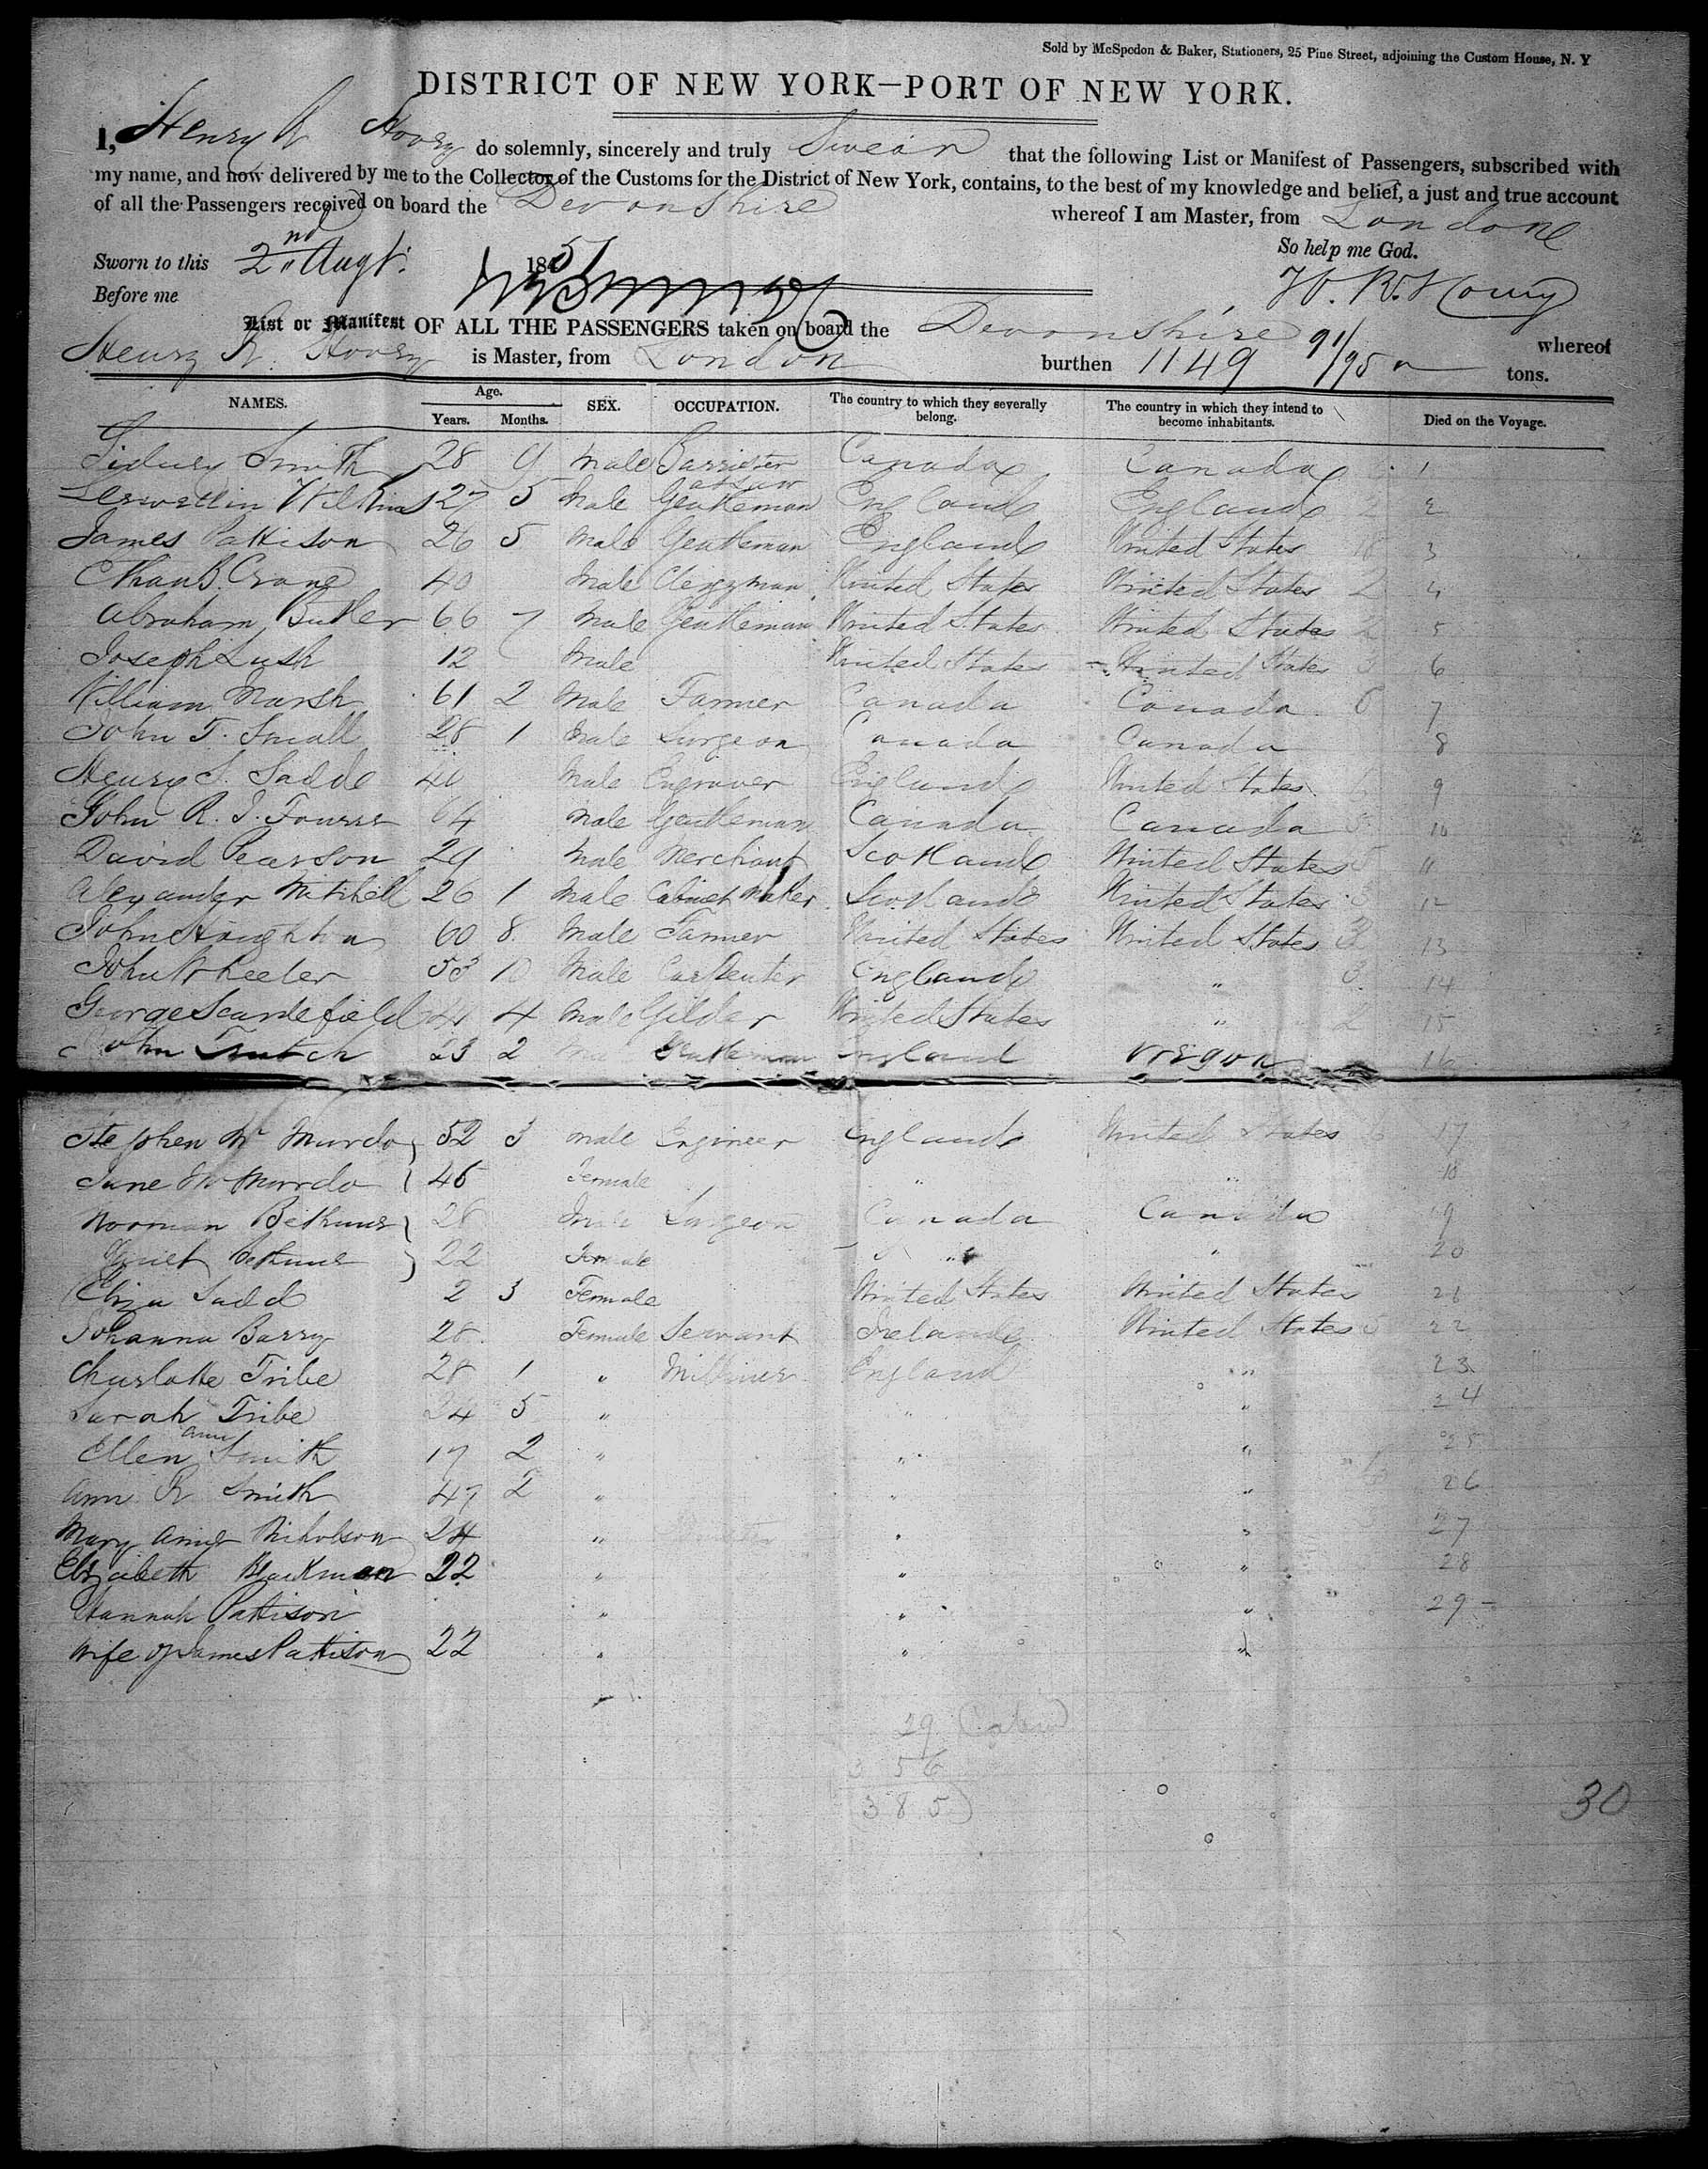 Sold by McSpedon & Baker, Stationers, 25 Pine Street, adjoining the Custom House, N. Y
DISTRICT OF NEW YORK—PORT OF NEW YORK.
I, Henry R Hovey do solemnly, sincerely and truly Swear that the following List or Manifest of Passengers, subscribed with
my name, and now delivered by me to the Collector of the Customs for the District of New York, contains, to the best of my knowledge and belief, a just and true account
of all the Passengers received on board the Devonshire whereof I am Master, from London
So help me God.
Sworn to this 2nd Augt. 1851
H. R. Hovey
Before me
List or Manifest OF ALL THE PASSENGERS taken on board the Devonshire whereof
Henry R. Hovey is Master, from London burthen 1149 91/95 tons.
NAMES. Age. Years. Months. SEX. OCCUPATION. The country to which they severally belong. The country in which they intend to become inhabitants. Died on the Voyage.
Sidney Smith 28 9 Male Barrister Canada Canada 1
at Law
Wilkins 27 5 Male Gentleman England England 2 2
James Pattison 26 5 Male Gentleman England United States 3
B. Crane 40 Male Clergyman United States United States 2 4
Abraham Butler 66 7 Male Gentleman United States United States 2 5
Joseph Lush 12 Male United States United States 3 6
William Marsh 61 2 Male Farmer Canada Canada 6 7
John T. Small 28 1 Male Surgeon Canada Canada 8
Henry S. Sadd 40 Male Engraver England United States 9
John R. J. 64 Male Gentleman Canada Canada 5 10
David Pearson 29 Male Merchant Scotland United States 5 11
Alexander Mitchell 26 1 Male Cabinet Maker Scotland United States 3 12
John Houghton 60 8 Male Farmer United States United States 13
John Wheeler 53 10 Male Carpenter England " 3 14
George Scandefield 4 Male Gilder United States " 2 15
John Trutch 23 2 Gentleman England Oregon 16
Stephen Mc Murdo 52 3 Male Engineer England United States 17
Jane Mc Murdo 46 Female " " 18
Norman Bethune 26 Male Surgeon Canada Canada 19
Bethune 22 Female " " 20
Eliza Sadd 2 3 Female United States United States 21
Johanna Barry 28 Female Servant Ireland United States 5 22
Charlotte Tribe 28 1 " Milliner England " 23
Sarah Tribe 24 5 " " " 24
Ellen Ann Smith 17 2 " " " 25
Ann R Smith 47 2 " " " 26
Mary Nicholson 24 " " " 27
Elizabeth Blackman 22 " " " 28
Hannah Pattison " " " 29
Wife of James Pattison 22 " " "
29 Cabin
356
385
30